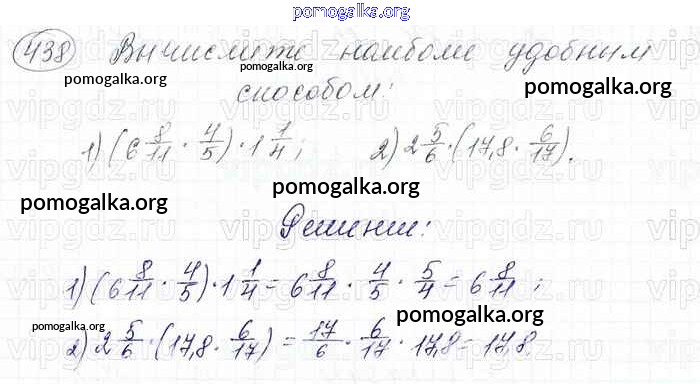 pomogalka.org
438 Вычислите наиболее удобным
pomogalka.org pomogalka.org
способом: pomogalka.org
1) (6 8/11 · 4/5) · 1 1/4; 2) 2 5/6 · (17,8 · 6/17).
pomogalka.org pomogalka.org
Решение:
1) (6 8/11 · 4/5) · 1 1/4 = 6 8/11 · 4/5 · 5/4 = 6 8/11;
pomogalka.org pomogalka.org
2) 2 5/6 · (17,8 · 6/17) = 17/6 · 6/17 · 17,8 = 17,8.
pomogalka.org pomogalka.org